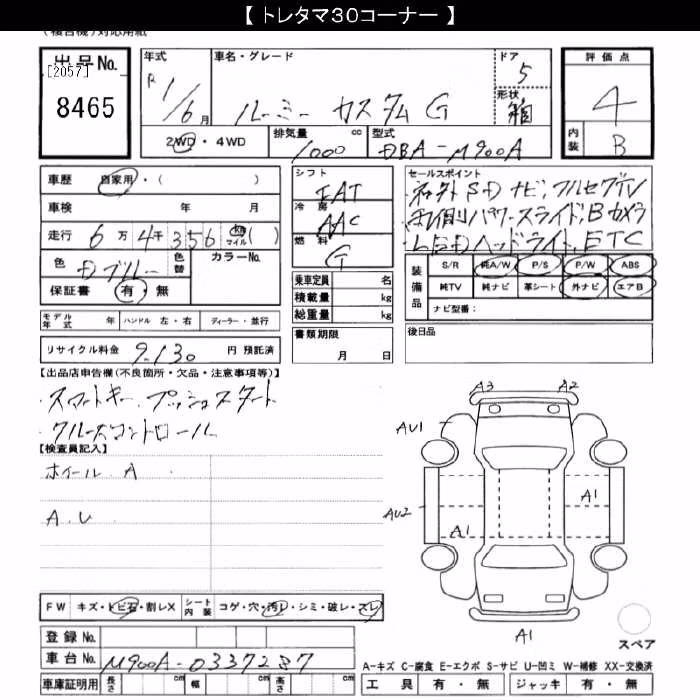 【 トレタマ30コーナー 】
(複合機)対応用紙
出品No.
[2057]
8465
年式
R 1/6月
車名・グレード
ルーミー カスタム G
ドア
5
形状
箱
評価点
4
内装
B
2WD・4WD
排気量 cc
1000
型式
DBA-M900A
車歴 自家用・( )
車検 年 月
走行 6万4千356 km マイル ( )
色 Dブルー
色替
カラーNo.
保証書 有・無
シフト
IAT
冷房
AAC
燃料
G
乗車定員 名
積載量 kg
総重量 kg
セールスポイント
ネオ外SDナビ,フルセグTV
両側パワースライド,Bカメラ
LEDヘッドライト,ETC
装備品
S/R 純A/W P/S P/W ABS
純TV 純ナビ 革シート 外ナビ エアB
ナビ型番:
モデル年式 年 ハンドル 左・右 ディーラー・並行
書類期限
月 日
後日品
リサイクル料金 9,130 円 預託済
【出品店申告欄(不良箇所・欠品・注意事項等)】
・スマートキー,プッシュスタート
・クルーズコントロール
【検査員記入】
ホイール A
A.U
A3 A2
AU1
AU2
A1
A1
A1
スペア
FW キズ・トビ石・割レX シート内装 コゲ・穴・汚レ・シミ・破レ・スレ
登録No.
車台No. M900A-0337287
A-キズ C-腐食 E-エクボ S-サビ U-凹ミ W-補修 XX-交換済
車庫証明用 長さ cm 幅 cm 高さ cm
工具 有・無 ジャッキ 有・無